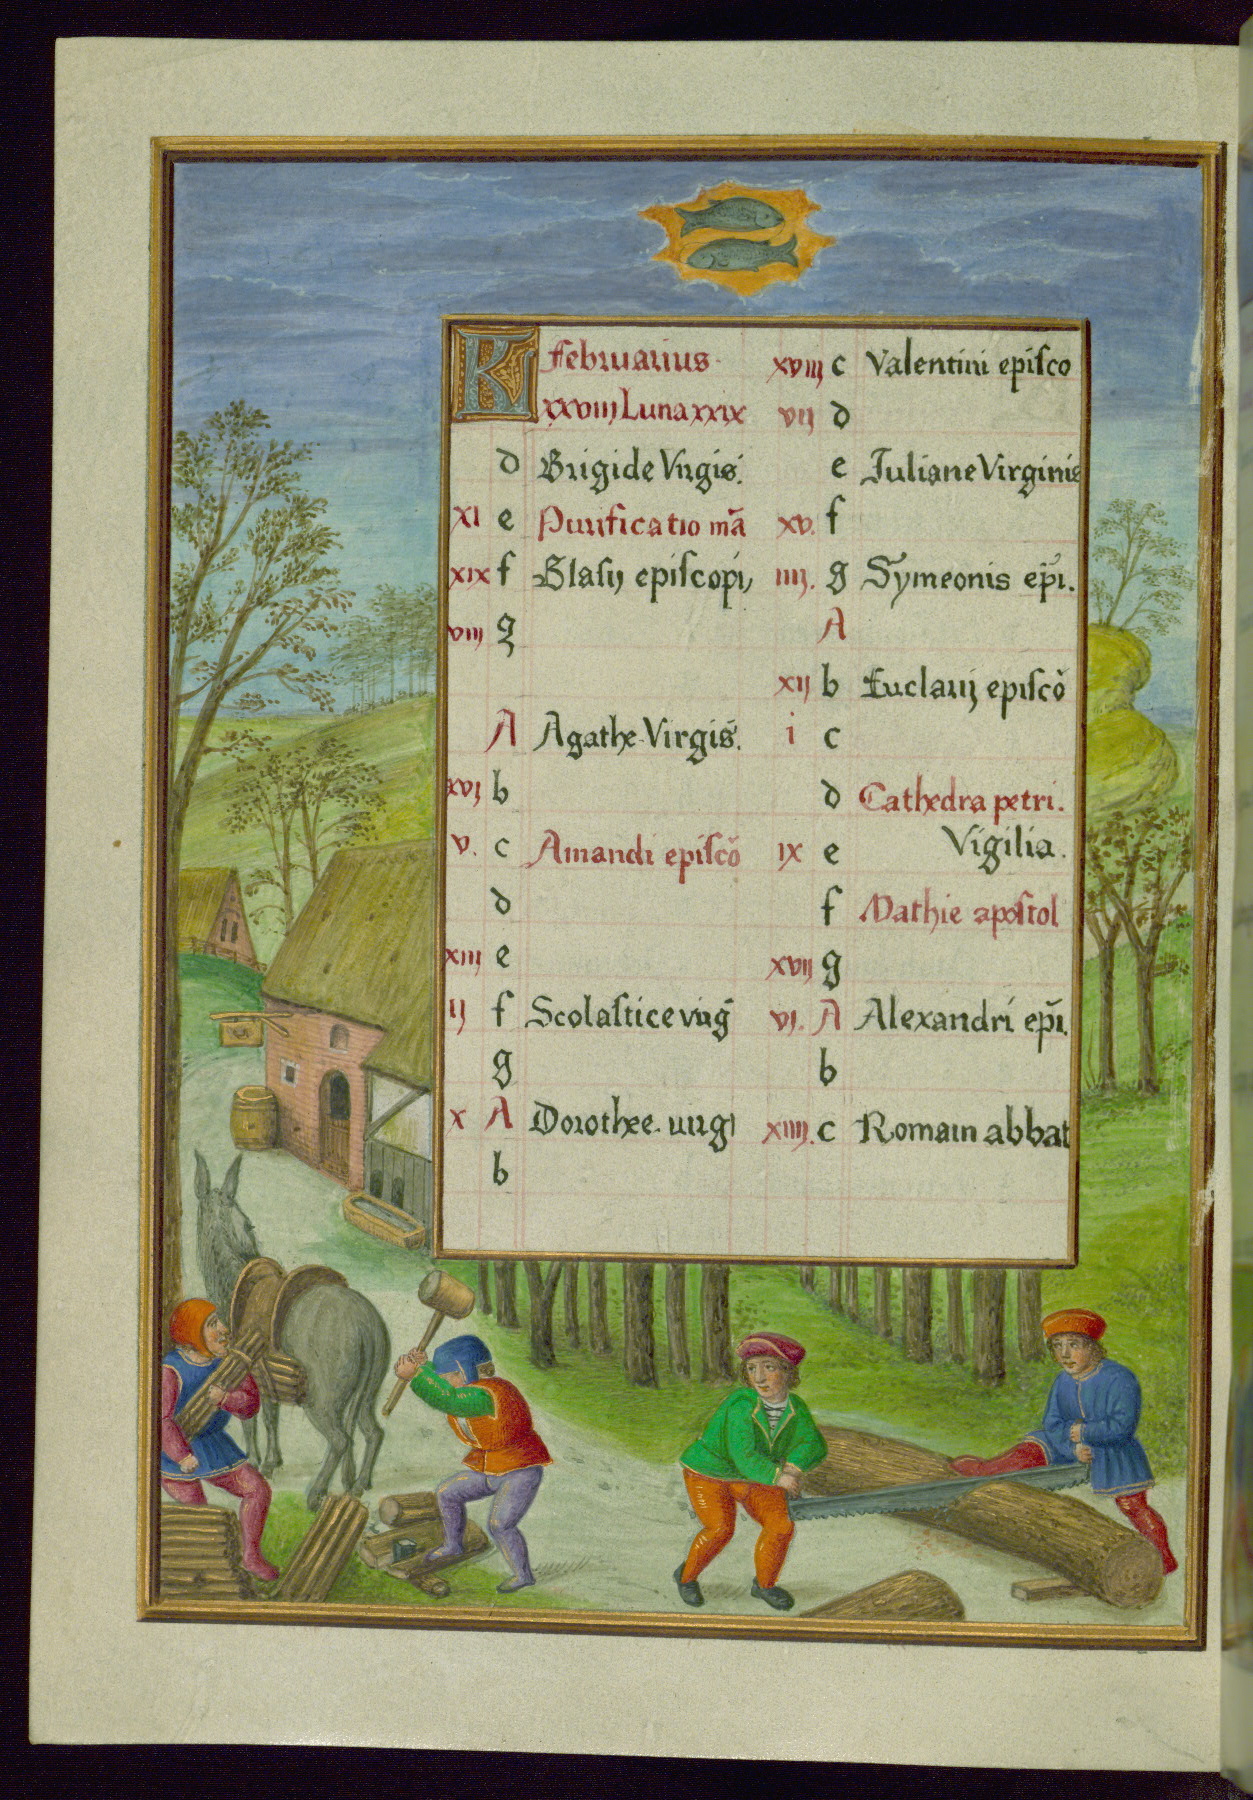 K Februarius
xxviii Luna xxix
d Brigide Virgis.
xi e Purificatio mā
xix f Blasij episcopi,
viii g
A Agathe Virgis.
xvj b
v. c Amandi episcō
d
xiii e
ij f Scolastice virḡ
g
x A Dorothee. uirgi
b
xviij c Valentini episco
vij d
e Juliane Virginis
xv. f
iiij. g Symeonis ep̄i.
A
xij b Euclarij episcō
i c
d Cathedra petri.
ix e Vigilia.
f Mathie apostol
xvij g
vj. A Alexandri ep̄i.
b
xiiij. c Romain abbat